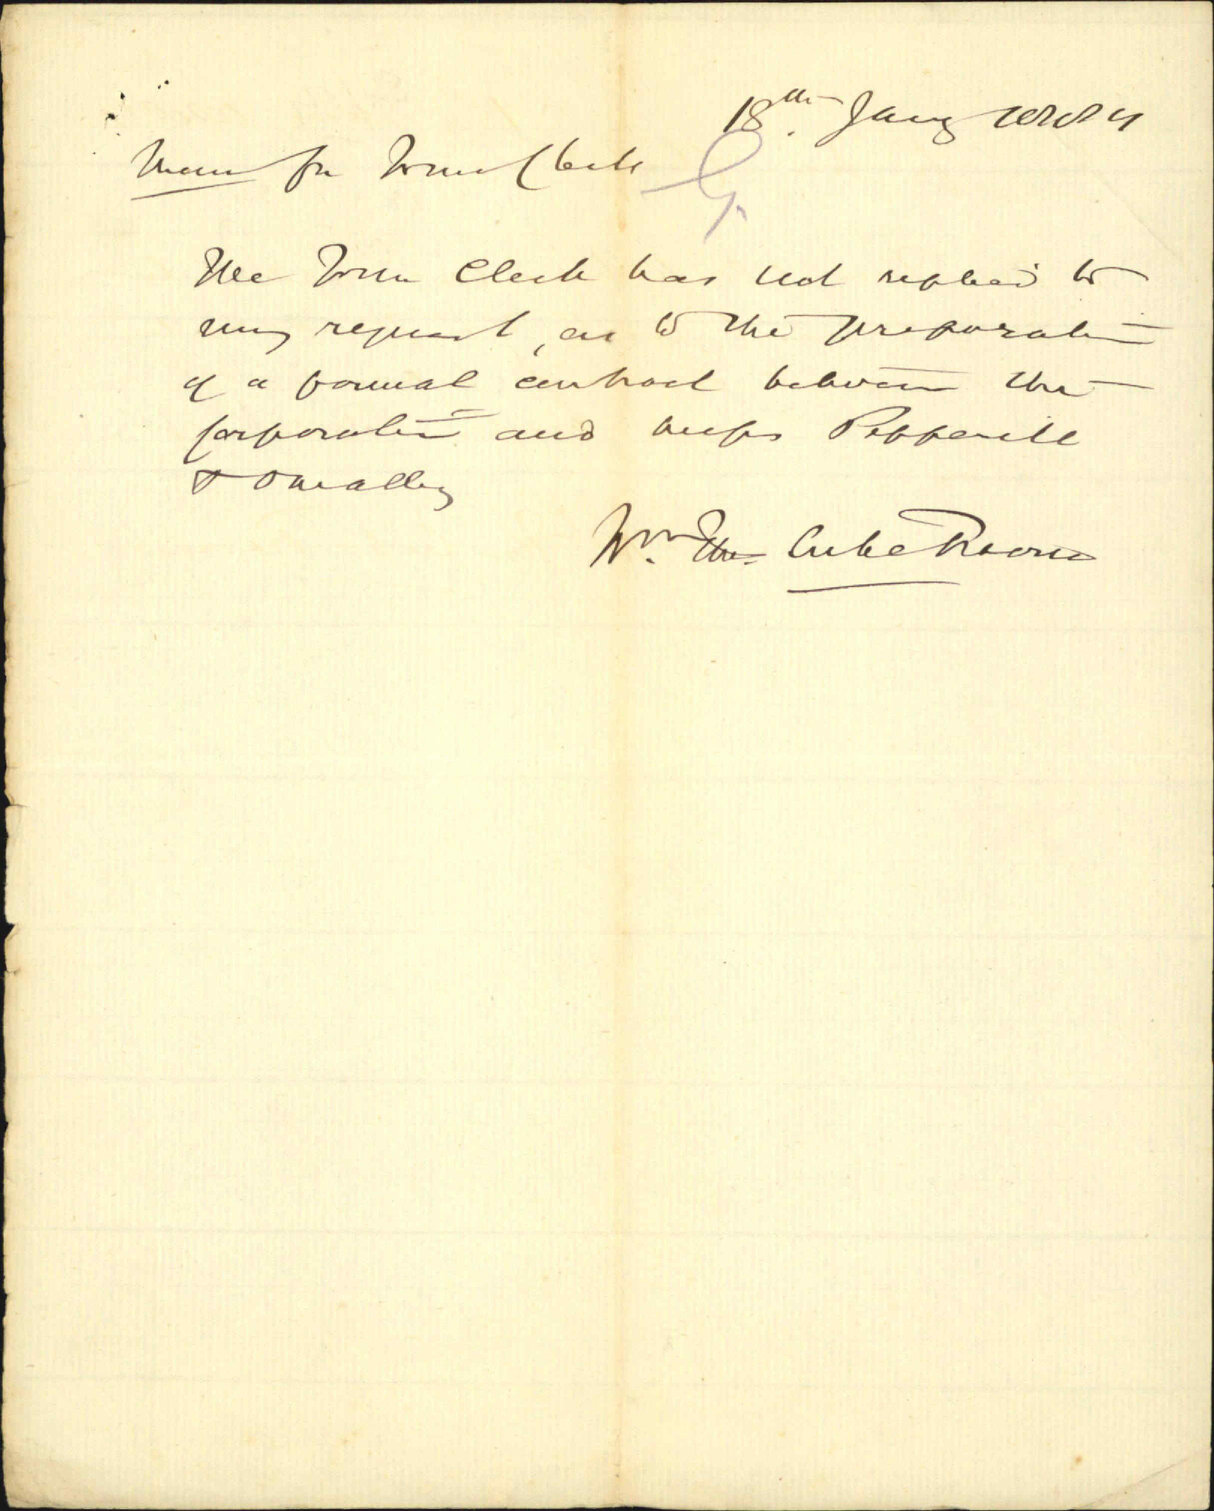 18th Jany 1884
Memo for Town Clerk
The Town Clerk has not replied to
my request, as to the preparation
of a formal contract between the
Corporation and Messrs Pepperill
& O'Malley
Wm. Thos.